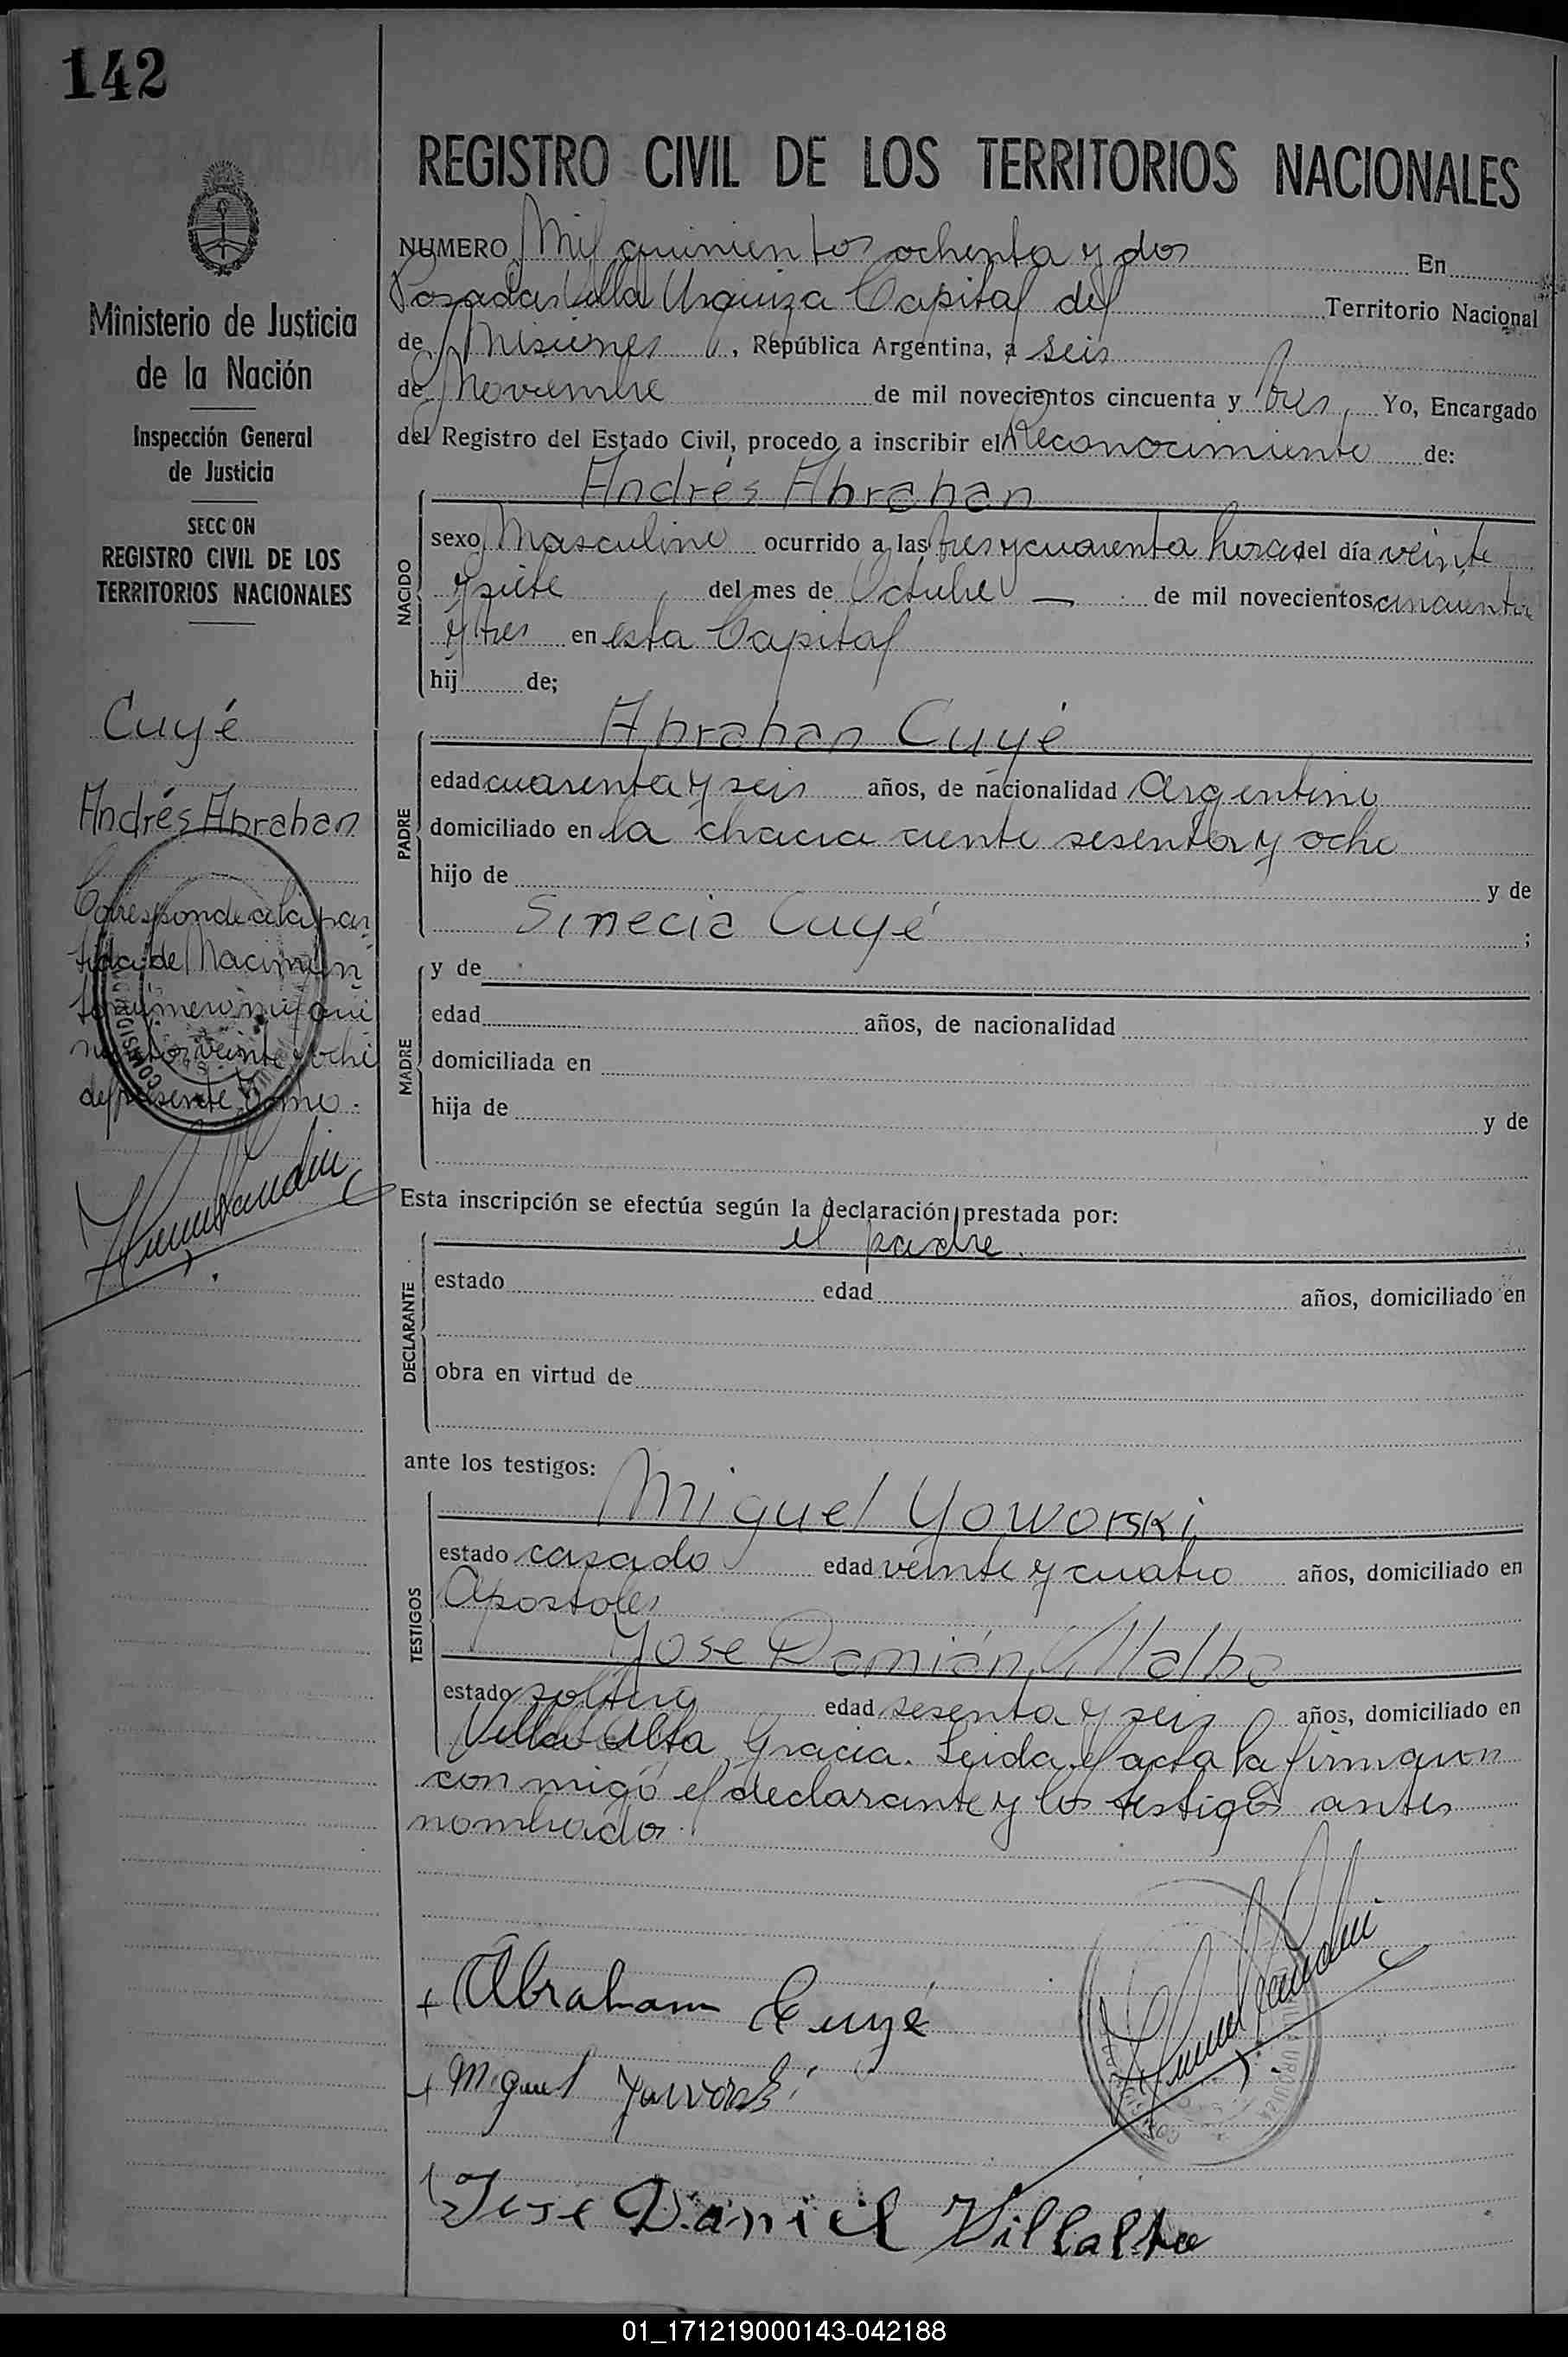 142
REGISTRO CIVIL DE LOS TERRITORIOS NACIONALES
Ministerio de Justicia
de la Nación
Inspección General
de Justicia
SECCION
REGISTRO CIVIL DE LOS
TERRITORIOS NACIONALES
Cuyé
Andrés Abrahan
Corresponde a la par
tida de Nacimien
to número mil qui
nientos veinte y ocho
del presente tomo.
NUMERO Mil quinientos ochenta y dos En
Posadas Villa Urquiza Capital del Territorio Nacional
de Misiones, República Argentina, a seis
de Noviembre de mil novecientos cincuenta y tres, Yo, Encargado
del Registro del Estado Civil, procedo a inscribir el Reconocimiento de:
NACIDO
Andrés Abrahan
sexo Masculino ocurrido a las tres y cuarenta horas del día veinte
y siete del mes de Octubre — de mil novecientos cincuenta
y tres en esta Capital
hij de;
PADRE
Abrahan Cuyé
edad cuarenta y seis años, de nacionalidad Argentino
domiciliado en la chacra ciento sesenta y ocho
hijo de y de
Sinecia Cuyé ;
MADRE
y de
edad años, de nacionalidad
domiciliada en
hija de y de
Esta inscripción se efectúa según la declaración prestada por:
DECLARANTE
el padre.
estado edad años, domiciliado en
obra en virtud de
ante los testigos:
TESTIGOS
Miguel Yoworski
estado casado edad veinte y cuatro años, domiciliado en
Apostoles
Jose Damián Villalba
estado soltero edad sesenta y seis años, domiciliado en
Villa Alta Gracia. Leida el acta la firmaron
conmigo el declarante y los testigos antes
nombrados.
+ Abraham Cuyé
+ Miguel Yavorski
Jose Daniel Villalba
01_171219000143-042188